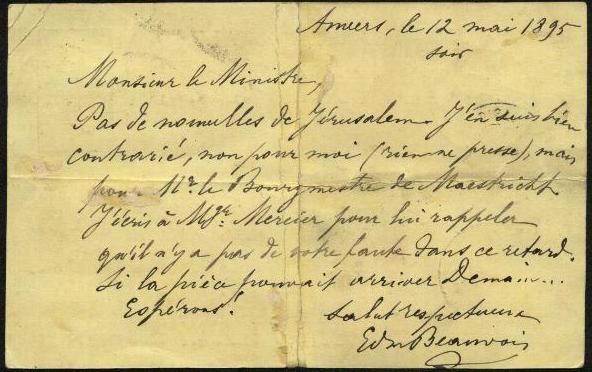 Anvers, le 12 mai 1895
soir
Monsieur le Ministre,
Pas de nouvelles de Jérusalem. J'en suis bien
contrarié, non pour moi (rien ne presse), mais
pour Mr. le Bourgmestre de Maestricht.
J'écris à Mgr. Mercier pour lui rappeler
qu'il n'y a pas de votre faute dans ce retard.
Si la pièce pouvait arriver Demain...
Espérons! Salut respectueux
Edm Beauvois